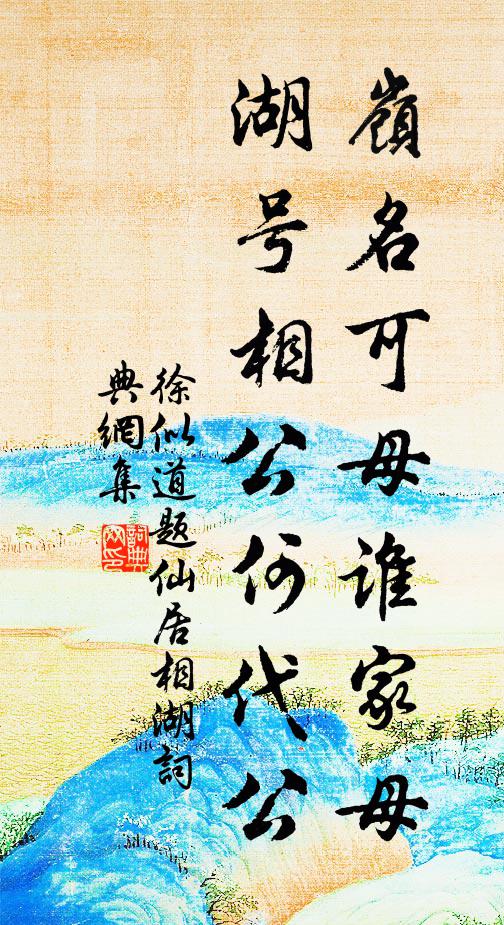 嶺名可母谁家母
湖号相公何代公
徐似道题仙居相湖詞
典網集